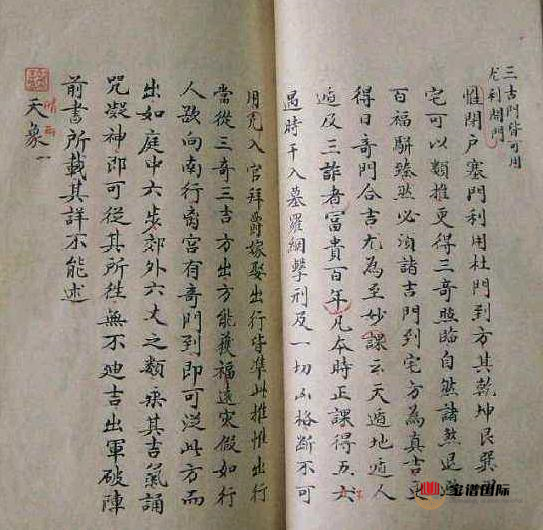 三吉門皆可用
尤利開門
惟開戶塞門利用杜門到方其乾坤艮巽
宅可以類推更得三奇照臨自然諸煞退
百福駢臻然必須諸吉門到宅方為真吉更
得日奇門合吉尤為至妙課云天遁地遁人
遁及三詐者富貴百年凡本時正課得五六
遇時干入墓羅網擊刑及一切凶格斷不可
用凡入官拜爵嫁娶出行皆準此推惟出行
當從三奇三吉方出方能獲福遠災假如行
人欲向南行离宮有奇門到即可從此方而
出如庭中六步郊外六丈之類乘其吉氣誦
咒凝神即可從其所往無不迪吉出軍破陣
前書所載其詳不能述
天象一
晴雨
宝谱国际